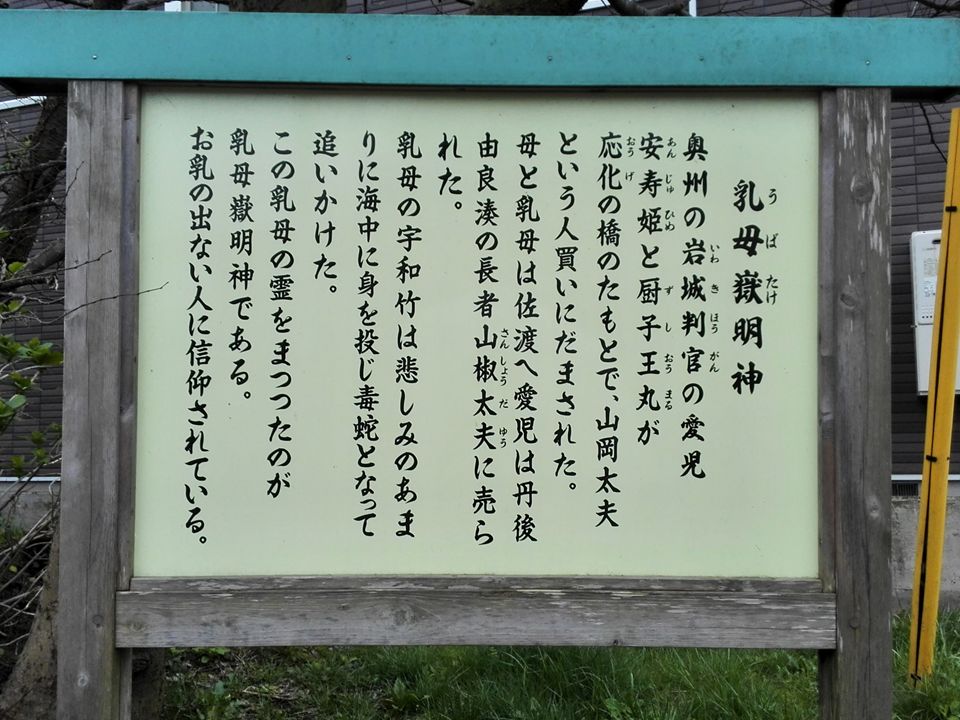 乳母嶽明神
奥州の岩城判官の愛児
安寿姫と厨子王丸が
応化の橋のたもとで、山岡太夫
という人買いにだまされた。
母と乳母は佐渡へ愛児は丹後
由良湊の長者山椒太夫に売ら
れた。
乳母の宇和竹は悲しみのあま
りに海中に身を投じ毒蛇となって
追いかけた。
この乳母の霊をまつつたのが
乳母嶽明神である。
お乳の出ない人に信仰されている。